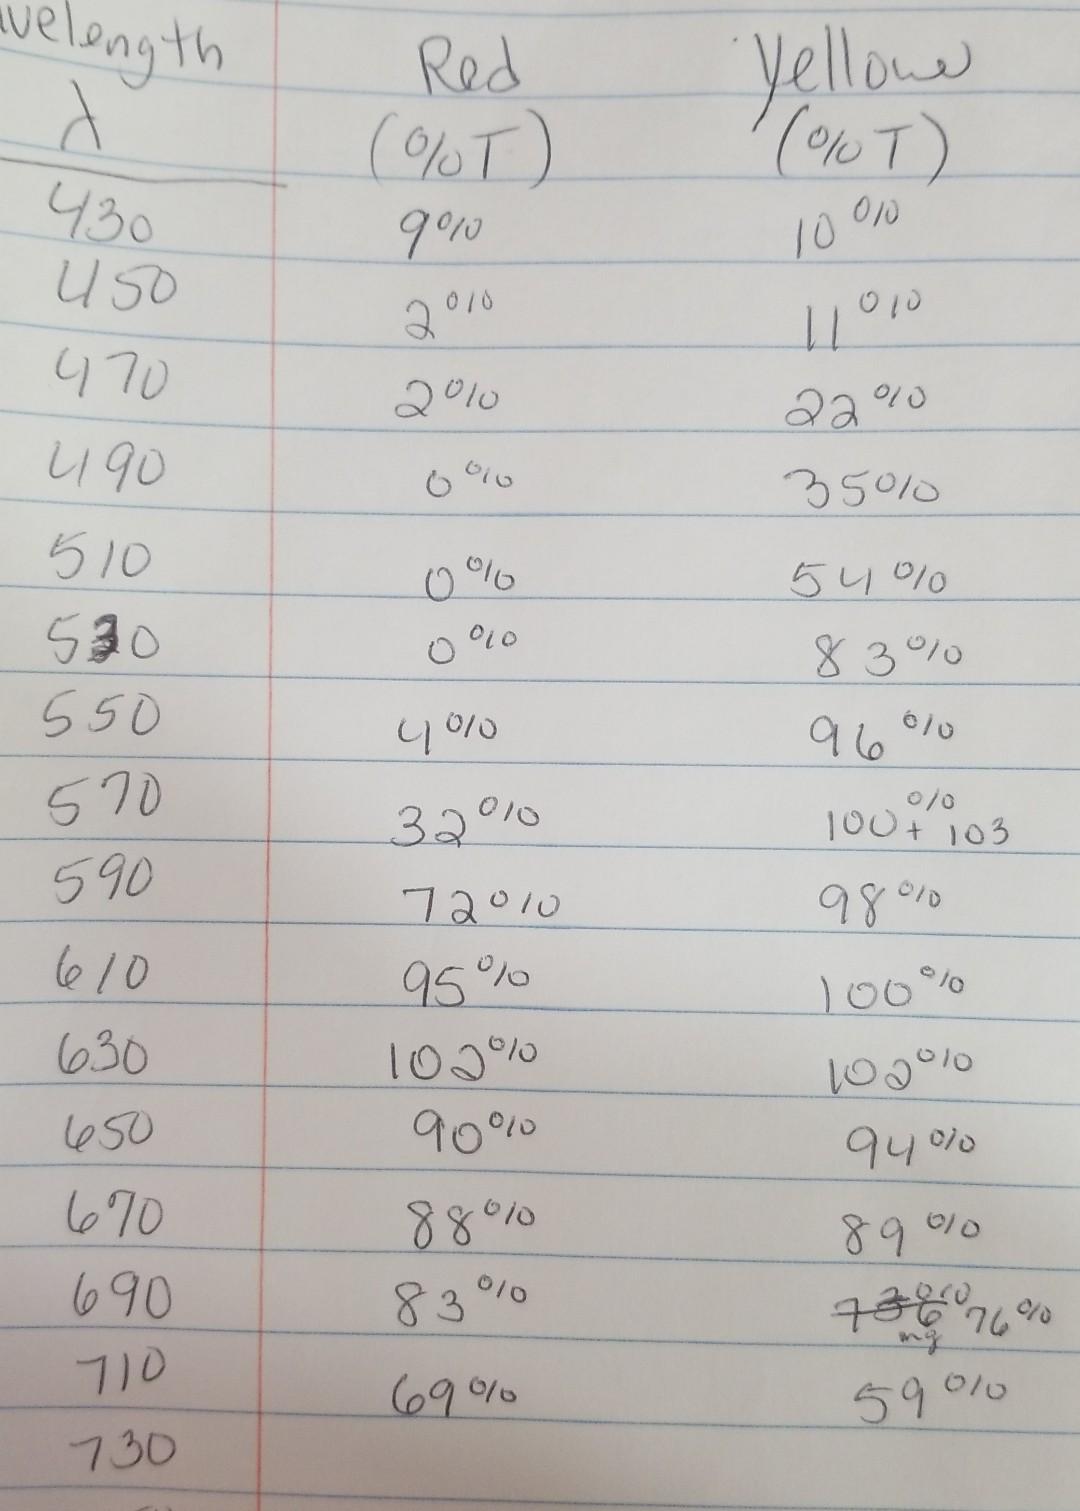 Red Yellow
λ (%T) (%T)
430 9% 10%
450 2% 11%
470 2% 22%
490 0% 35%
510 0% 54%
530 0% 83%
550 4% 96%
570 32% 100%+ 103
590 72% 98%
610 95% 100%
630 102% 102%
650 90% 94%
670 88% 89%
690 83% 76%
mg
710 69% 59%
730